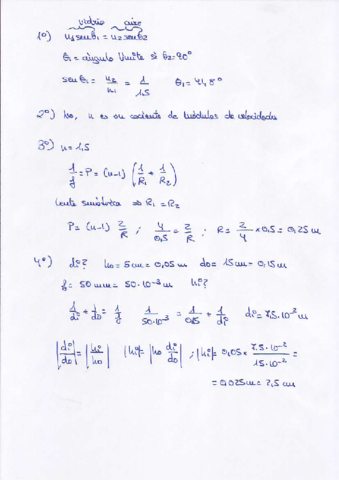 vidrio aire
1º) n₁senθ₁ = n₂senθ₂
θ₁ = ángulo límite si θ₂=90º
senθ₁ = n₂/n₁ = 1/1,5 θ₁ = 41,8º
2º) No, n es un cociente de módulos de velocidades
3º) n = 1,5
1/f = P = (n-1) (1/R₁ + 1/R₂)
Lente simétrica ⇒ R₁ = R₂
P = (n-1) 2/R ; 4/0,5 = 2/R ; R = 2/4 × 0,5 = 0,25 m
4º) di? ho = 5 cm = 0,05 m do = 15 cm = 0,15 m
f = 50 mm = 50·10⁻³ m hi?
1/di + 1/do = 1/f 1/50·10⁻³ = 1/0,15 + 1/di di = 7,5·10⁻² m
|di/do| = |hi/ho| |hi| = |ho di/do| ; |hi| = 0,05 × 7,5·10⁻²/15·10⁻² =
= 0,025 m = 2,5 cm